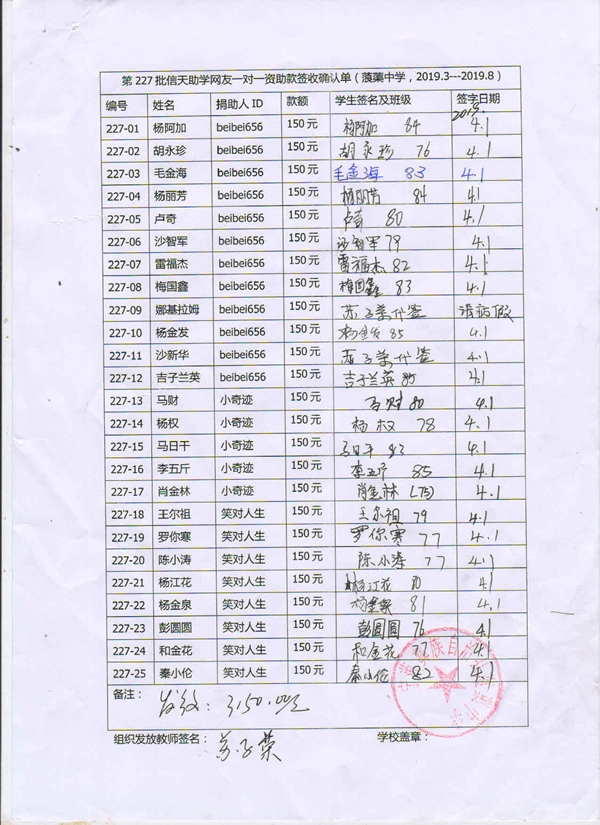 第 227 批信天助学网友一对一资助款签收确认单（蕖中学，2019.3---2019.8）
编号 姓名 捐助人 ID 款额 学生签名及班级 签字日期
2019.
227-01 杨阿加 beibei656 150 元 杨阿加 84 4.1
227-02 胡永珍 beibei656 150 元 胡永珍 76 4.1
227-03 毛金海 beibei656 150 元 毛金海 83 4.1
227-04 杨丽芳 beibei656 150 元 杨丽芳 84 4.1
227-05 卢奇 beibei656 150 元 卢奇 80 4.1
227-06 沙智军 beibei656 150 元 沙智军 79 4.1
227-07 雷福杰 beibei656 150 元 雷福杰 82 4.1
227-08 梅国鑫 beibei656 150 元 梅国鑫 83 4.1
227-09 娜基拉姆 beibei656 150 元 苏子荣代签 请病假
227-10 杨金发 beibei656 150 元 杨金发 85 4.1
227-11 沙新华 beibei656 150 元 苏子荣代签 4.1
227-12 吉子兰英 beibei656 150 元 吉子兰英 85 4.1
227-13 马财 小奇迹 150 元 马财 80 4.1
227-14 杨权 小奇迹 150 元 杨权 78 4.1
227-15 马日干 小奇迹 150 元 马日干 83 4.1
227-16 李五斤 小奇迹 150 元 李五斤 85 4.1
227-17 肖金林 小奇迹 150 元 肖金林 (75) 4.1
227-18 王尔祖 笑对人生 150 元 王尔祖 79 4.1
227-19 罗你寒 笑对人生 150 元 罗你寒 77 4.1
227-20 陈小涛 笑对人生 150 元 陈小涛 77 4.1
227-21 杨江花 笑对人生 150 元 杨江花 4.1
227-22 杨金泉 笑对人生 150 元 杨金泉 81 4.1
227-23 彭圆圆 笑对人生 150 元 彭圆圆 76 4.1
227-24 和金花 笑对人生 150 元 和金花 77 4.1
227-25 秦小伦 笑对人生 150 元 秦小伦 82 4.1
备注： 发放：3150.00元
组织发放教师签名： 苏子荣 学校盖章：
族自治